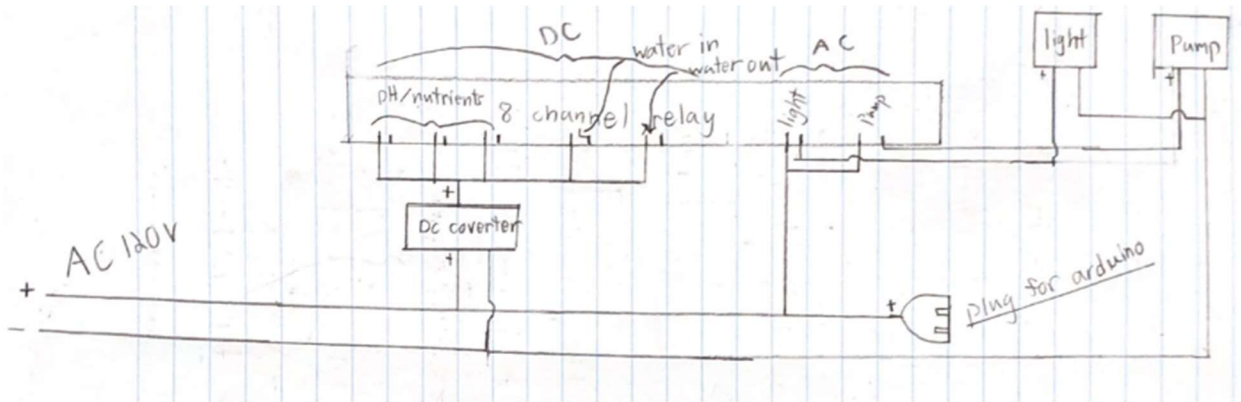 DC
water in
water out
AC
light
Pump
+
+
pH/nutrients
8 channel relay
light
Pump
+
Dc coverter
+
AC 120V
+
-
+
plug for arduino